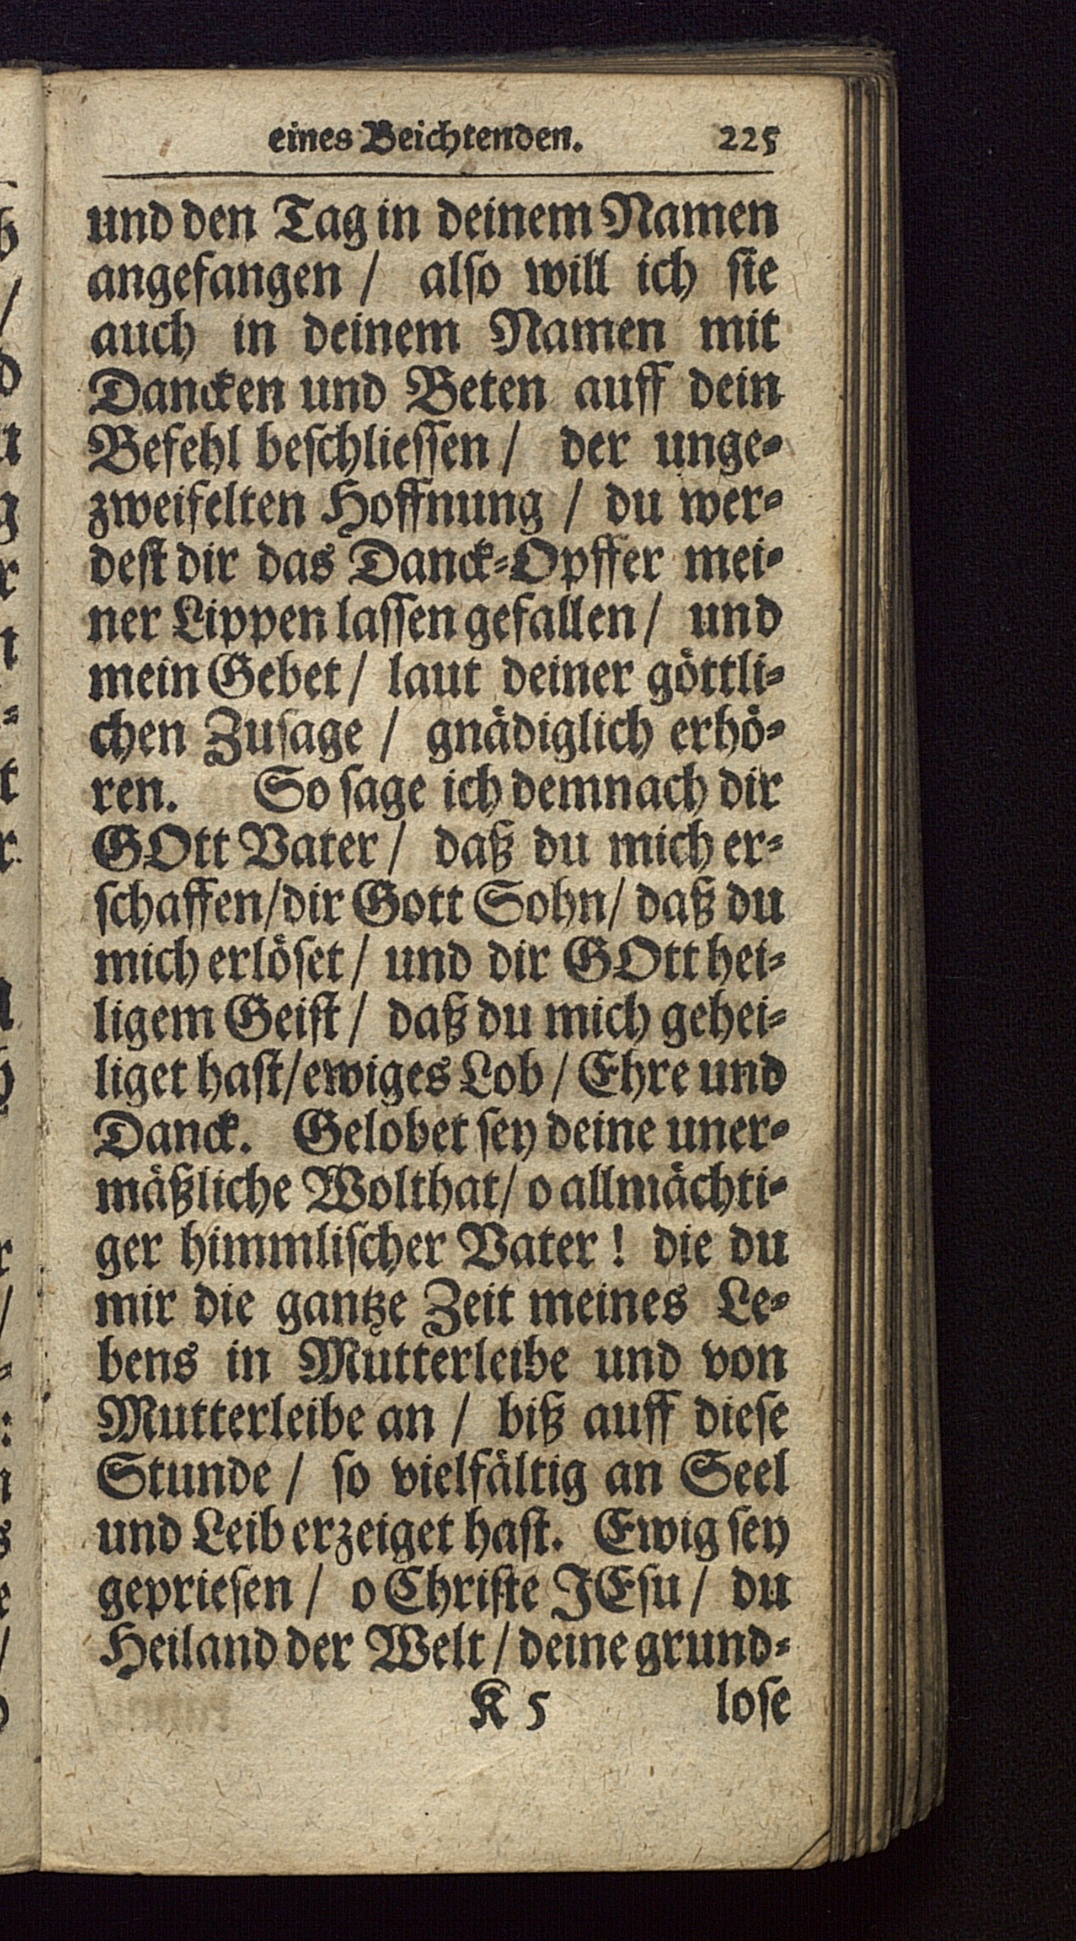 eines Beichtenden. 225
und den Tag in deinem Namen
angefangen / also will ich sie
auch in deinem Namen mit
Dancken und Beten auff dein
Befehl beschliessen / der unge-
zweifelten Hoffnung / du wer-
dest dir das Danck-Opffer mei-
ner Lippen lassen gefallen / und
mein Gebet / laut deiner göttli-
chen Zusage / gnädiglich erhö-
ren. So sage ich demnach dir
GOtt Vater / daß du mich er-
schaffen / dir Gott Sohn / daß du
mich erlöset / und dir GOtt hei-
ligem Geist / daß du mich gehei-
liget hast / ewiges Lob / Ehre und
Danck. Gelobet sey deine uner-
mäßliche Wolthat / o allmächti-
ger himmlischer Vater ! die du
mir die gantze Zeit meines Le-
bens in Mutterleibe und von
Mutterleibe an / biß auff diese
Stunde / so vielfältig an Seel
und Leib erzeiget hast. Ewig sey
gepriesen / o Christe JEsu / du
Heiland der Welt / deine grund-
K 5 lose